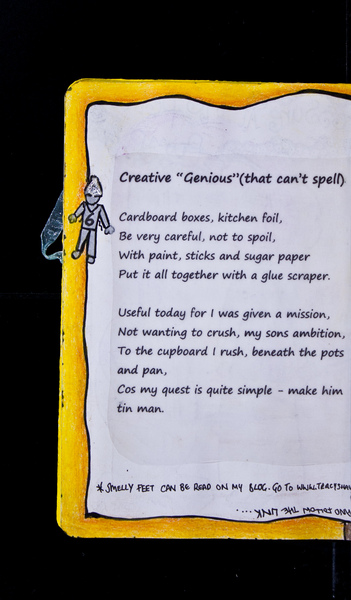 Creative “Genious”(that can't spell)
Cardboard boxes, kitchen foil,
Be very careful, not to spoil,
With paint, sticks and sugar paper
Put it all together with a glue scraper.
Useful today for I was given a mission,
Not wanting to crush, my sons ambition,
To the cupboard I rush, beneath the pots
and pan,
Cos my quest is quite simple - make him
tin man.
6
* SMELLY FEET CAN BE READ ON MY BLOG. GO TO
AND FOLLOW THE LINK....